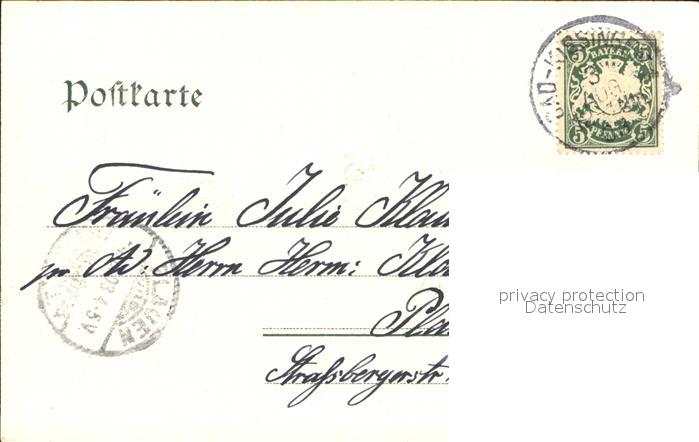 BAD-KISSING
5 BAYERN 5
5 PFENNIG 5
Postkarte
Fräulein Julie Klau
pr Ad: Herrn Herm: Klo
Pla
Straßbergerstr.
PLAUEN
03.4-5V.
privacy protection
Datenschutz